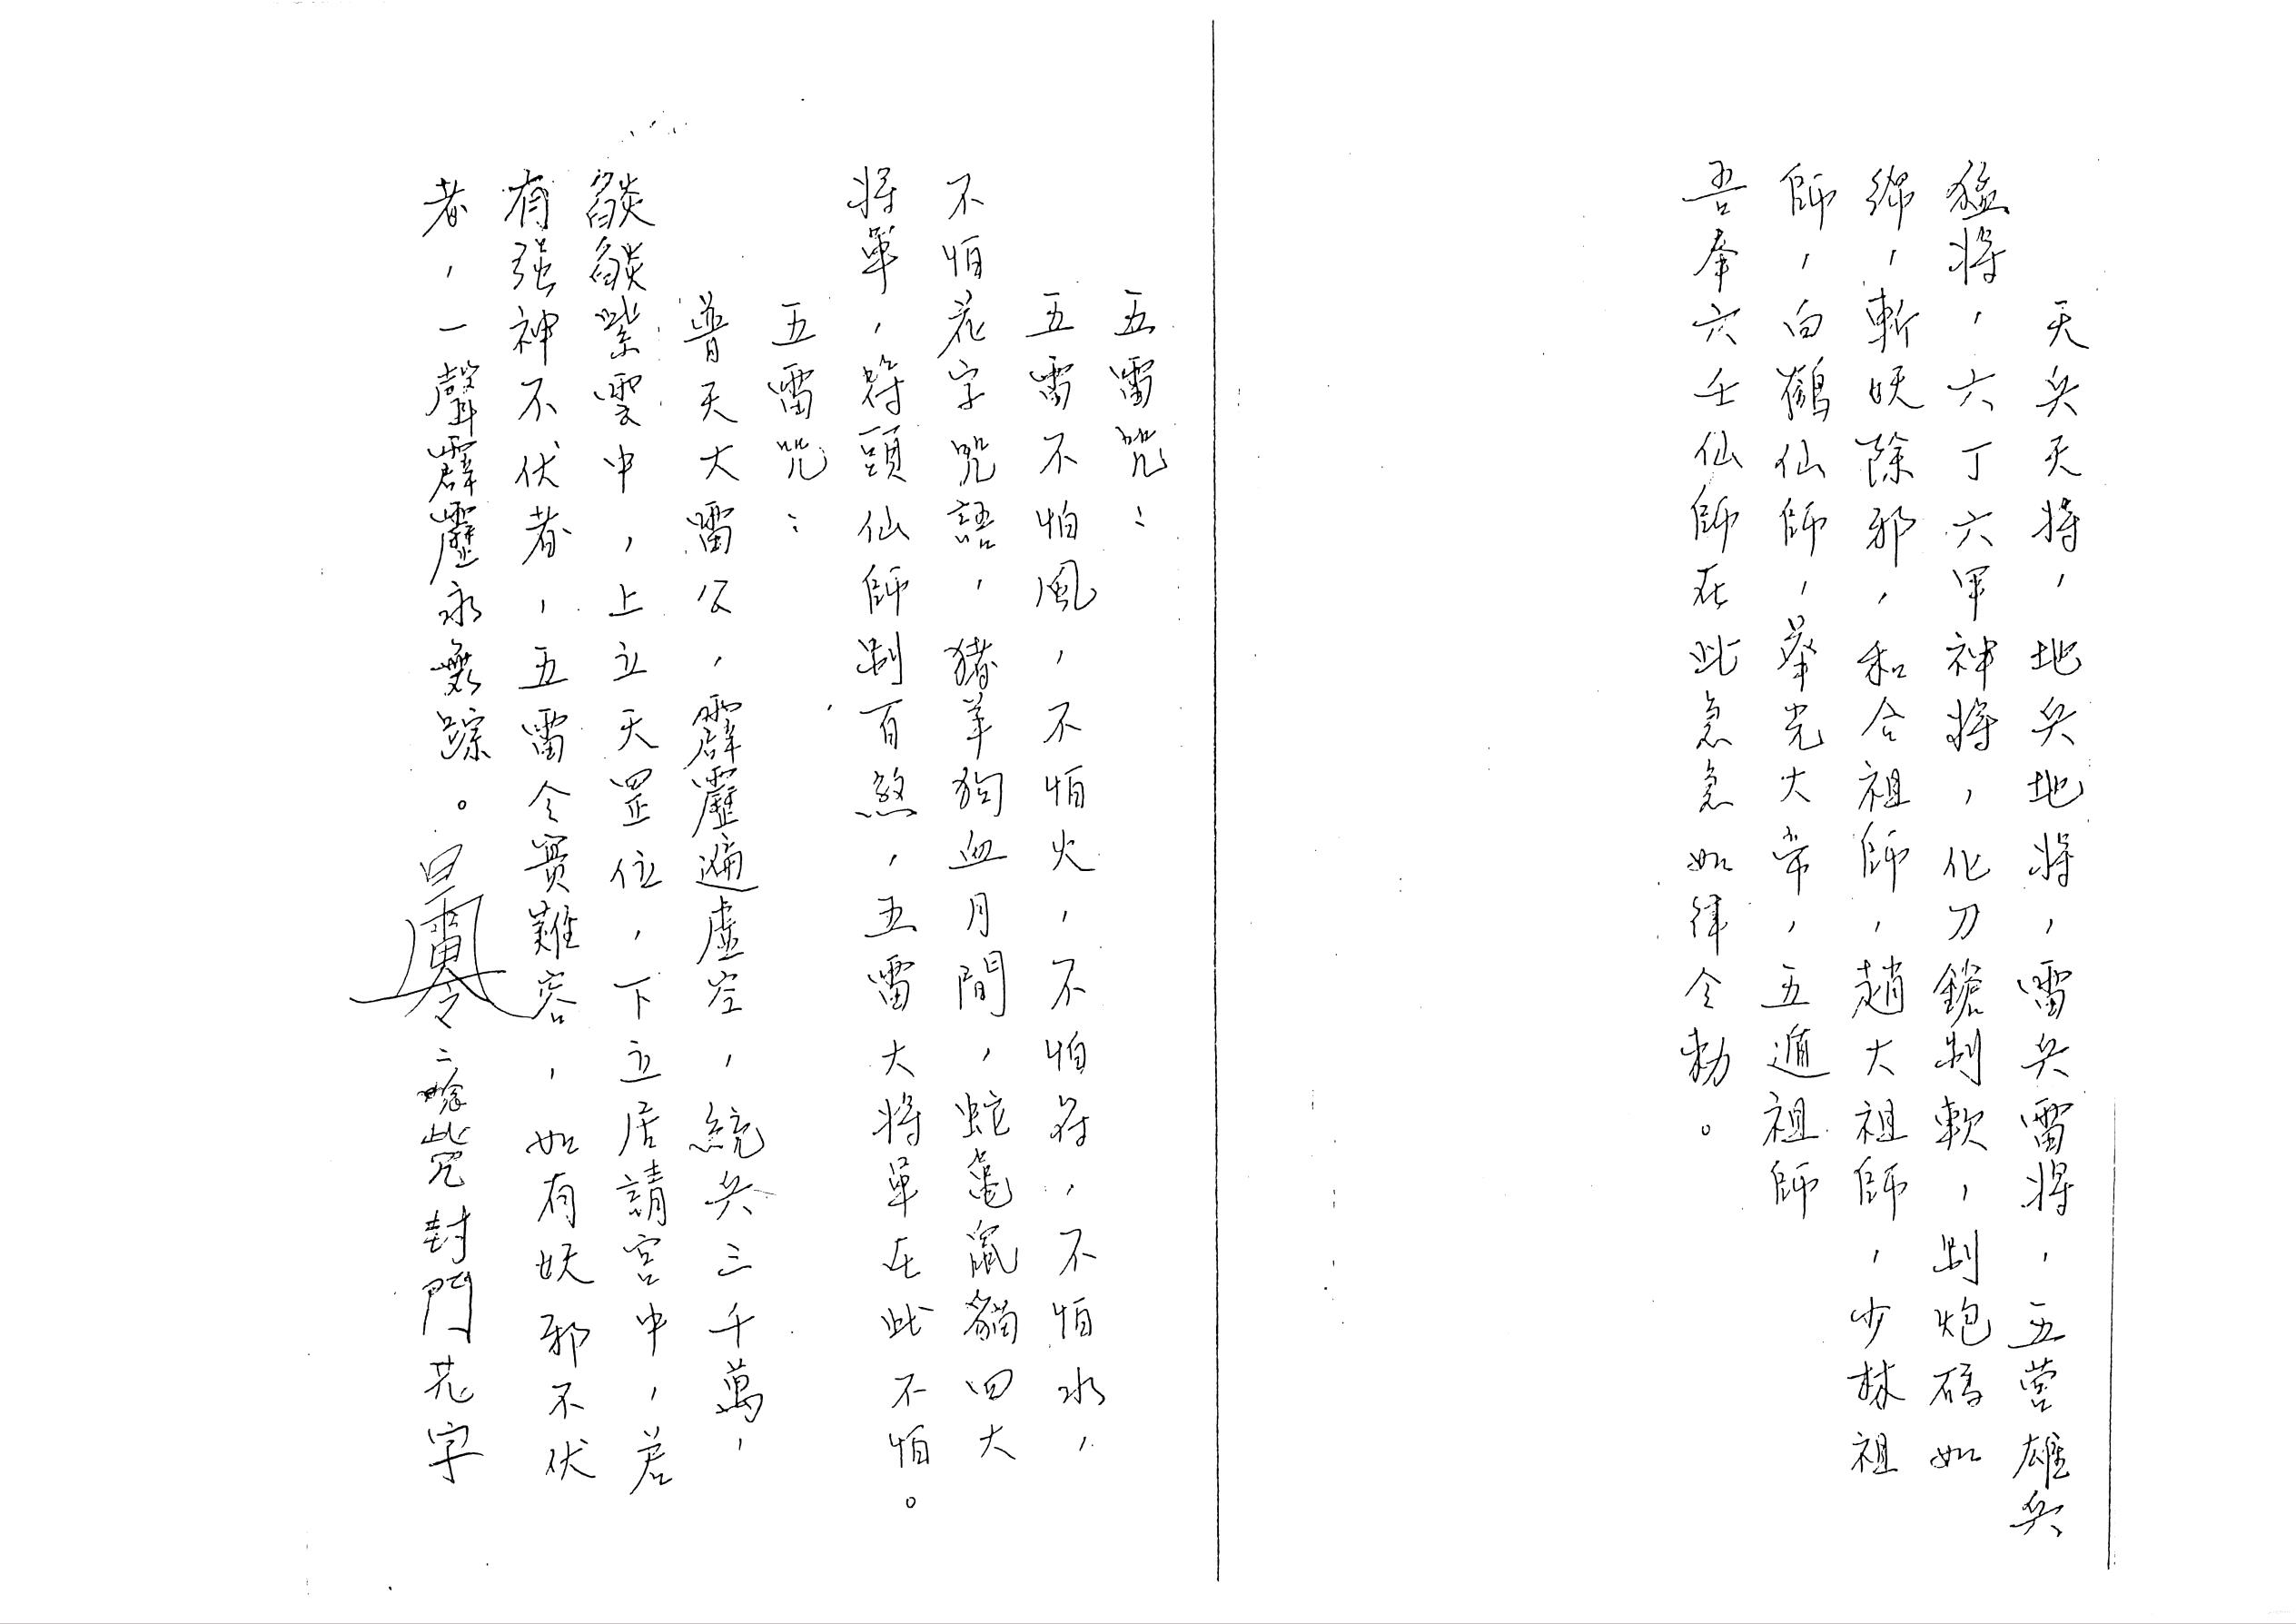 天兵天將，地兵地將，雷兵雷將，五營雄兵
猛將，六丁六甲神將，化刀鎗制軟，制炮碼如
綿，斬妖除邪，和合祖師，趙大祖師，少林祖
師，白鶴仙師，華光大帝，五遁祖師
吾奉六壬仙師在此急急如律令勅。
五雷咒：
五雷不怕風，不怕火，不怕符，不怕水，
不怕花字咒語，猪羊狗血月間，蛇龜鼠貓四大
將軍，符頭仙師制百煞，五雷大將軍在此不怕。
五雷咒：
普天大雷公，霹靂遍虛空，統兵三千萬，
燄燄紫雲中，上立天罡位，下立居請宮中，若
有强神不伏者，五雷令實難容，如有妖邪不伏
者，一聲霹靂永無踪。 二唸此咒封門花字